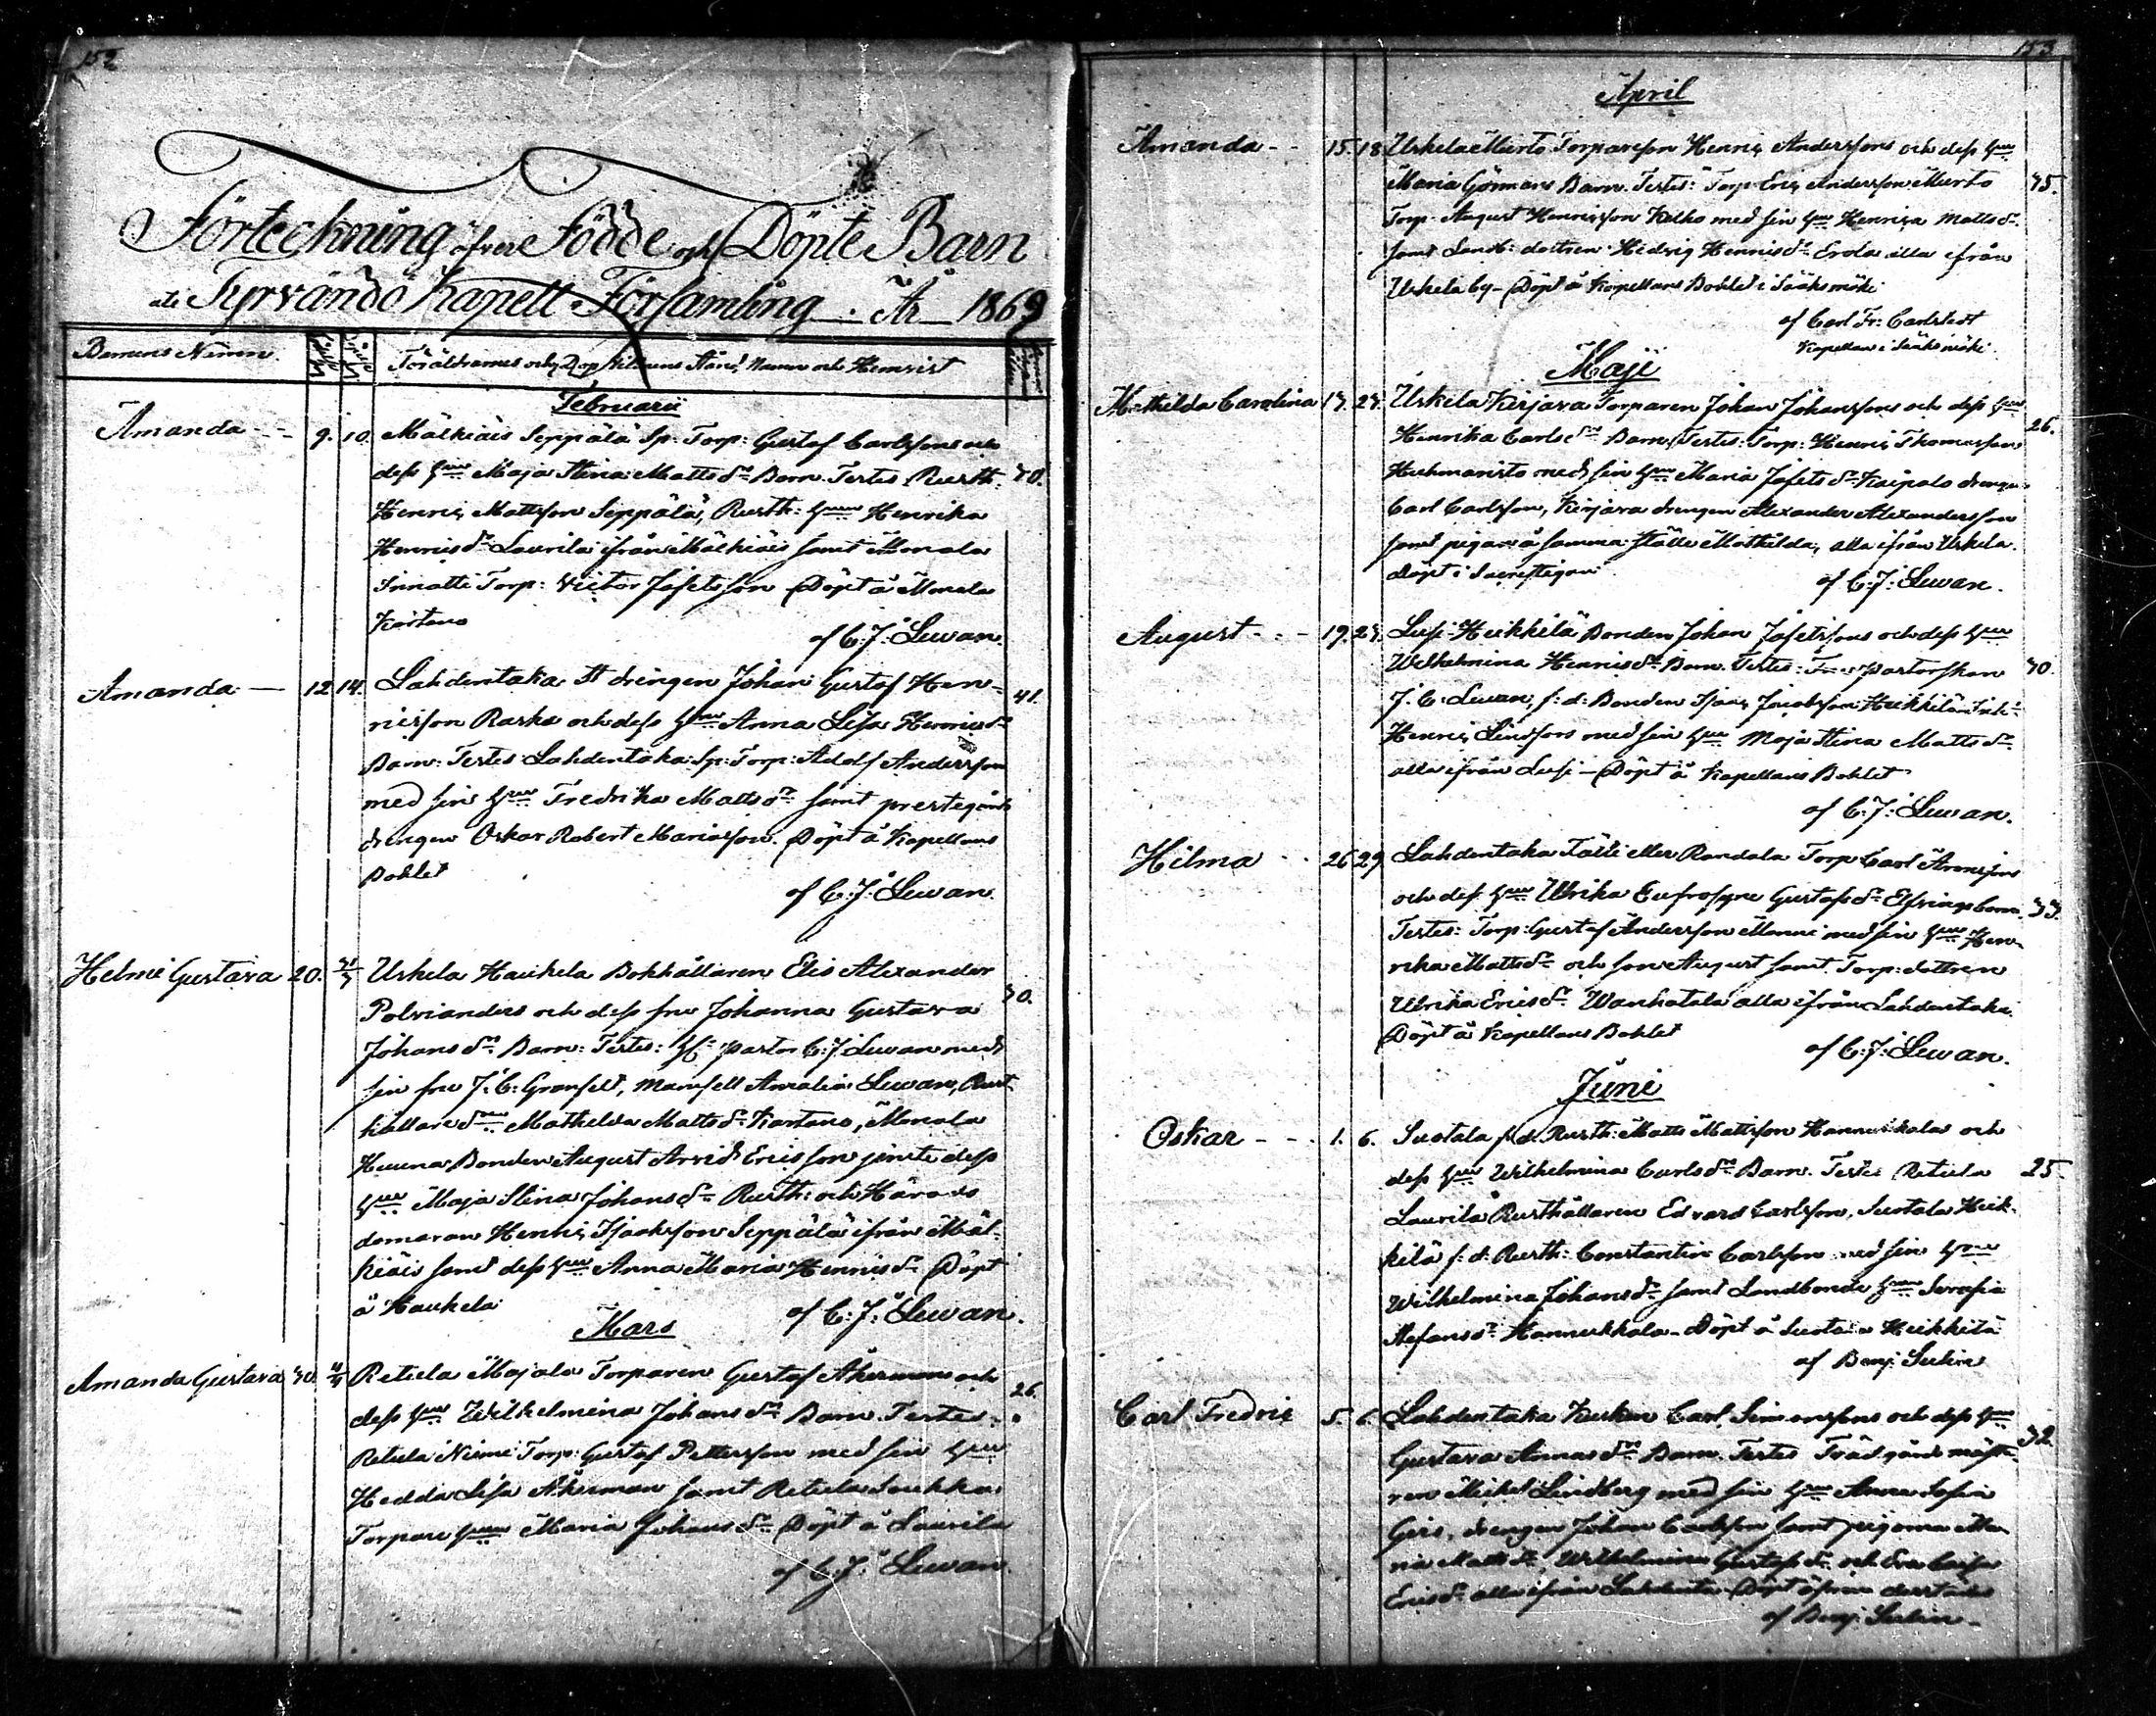 152
Förteckning öfver Födde och Döpte Barn
uti Tyrvändö Kapell Församling . År 1869
Barnens Namn. Föräldrarnes och Dop Vittnens Stånd, Namn och Hemvist
Februarii
Amanda 9. 10. Mälkiäis Seppälä Sp: Torp: Gustaf Carlssons och
dess Hu Maja Stina Matts dr Barn. Testes Rusth: 30.
Henric Mattsson Seppälä, Rusth: Hun Henrika
Henrics dr Laurila ifrån Mälkiäis samt Monala
Innatti Torp: Victor Josefsson Döpt å Monala
Kartano
af C: J: Lewan.
Amanda 12 14. Lahdentaka St drengen Johan Gustaf Hen= 41.
ricsson Raska och dess Hu Anna Lisa Henrics dr
Barn: Testes Lahdentaka Sp: Torp: Adolf Andersson
med sin Hu Fredrika Matts dr samt prestegårds
drengen Oskar Robert Mariasson. Döpt å Kapellans
Bohlet
af C: J: Lewan.
Helmi Gustava 20. Urkela Haukela Bokhållaren Elis Alexander
Polvianders och dess fru Johanna Gustava 30.
Johans dr Barn: Testes: Hr Pastor C: J: Lewan med
sin fru J: C: Granfelt, Mamsell Amalia Lewan, Rust
hållare dr Mathilda Matts dr Kartano, Monala
Huuna Bonden August Arvid Ericsson jemte dess
Hu Maja Stina Johans dr Rusth: och Härads
domaren Henric Isaksson Seppälä ifrån Mäl=
kiäis samt dess Hu Anna Maria Henrics dr Döpt
å Haukela af C: J: Lewan.
Mars
Amanda Gustava 30. Retula Majala Torparen Gustaf Åkermans och
dess Hu Wilhelmina Johans dr Barn. Testes: 26.
Retula Niemi Torp: Gustaf Pettersson med sin Hu
Hedda Lisa Åkerman samt Retula Loukka
Torpare Hu Maria Johans dr Döpt å Laurila
af C: J: Lewan.
153
April
Amanda 15. 18. Urkela Murto Torparesson Henric Anderssons och dess Hu
Maria Görmans Barn. Testes: Torp: Eric Andersson Murto 35.
Torp: August Henricsson Kelho med sin Hu Henrica Matts dr
samt Landb: dottren Hedvig Henrics dr Erola alla ifrån
Urkela by. Döpt å Kapellans Bohlet i Sääksmäki
af Carl Fr: Carlstedt
Kapellan i Sääksmäki.
Maji
Mathilda Carolina 17. 27. Urkela Kirjava Torparen Johan Johanssons och dess Hu
Henrika Carls dr Barn. Testes: Torp: Henric Thomasson 26.
Huhmaristo med sin Hu Maria Josefs dr Kaipala drengen
Carl Carlsson, Kirjava drengen Alexander Alexandersson
samt pigan å samma ställe Mathilda, alla ifrån Urkela.
Döpt i Sacristigan
af C: J: Lewan.
August 19. 27. Lusi Heikkilä Bonden Johan Josefssons och dess Hu
Wilhelmina Henrics dr Barn. Testes: Fru pastorskan 30.
J. C: Lewan, f: d: Bonden Isaac Jacobsson Heikkilä
Henric Lindfors med sin Hu Maja Stina Matts dr
alla ifrån Lusi. Döpt å Kapellans Bohlet
af C: J: Lewan.
Hilma 26 29 Lahdentaka Tälli eller Randala Torp: Carl Aronssons
och dess Hu Ulrika Eufrosyne Gustafs dr Elfvings barn 33.
Testes: Torp: Gustaf Andersson Manni med sin Hu Hen=
rika Matts dr och son August samt Torp: dottren
Ulrika Erics dr Wanhatalo alla ifrån Lahdentaka.
Döpt å Kapellans Bohlet
af C: J: Lewan.
Juni
Oskar 1. 6. Suotala f: d: Rusth: Matts Mattsson Hannukkalas och
dess Hu Wilhelmina Carls dr Barn. Testes Retula 25
Laurila Rusthållaren Edvard Carlsson, Suotala Heik=
kilä f: d: Rusth: Constantin Carlsson med sin Hu
Wilhelmina Johans dr samt Landbonde Hu Serafia
Stefans dr Hannukkala. Döpt å Suotala Heikkilä
af Benj: Sulin
Carl Fredric 5. 6. Lahdentaka Kusken Carl Simonssons och dess Hu
Gustava Annas dr Barn. Testes Trädgårds mäste= 32.
ren Mickel Lindberg med sin Hu Anna Sofia
drengen Johan Carlsson samt pigorna Ma=
ria Matts dr Wilhelmina Gustafs dr och Eva Caisa
Erics dr alla ifrån Lahdentaka. Döpt
af Benj: Sulin